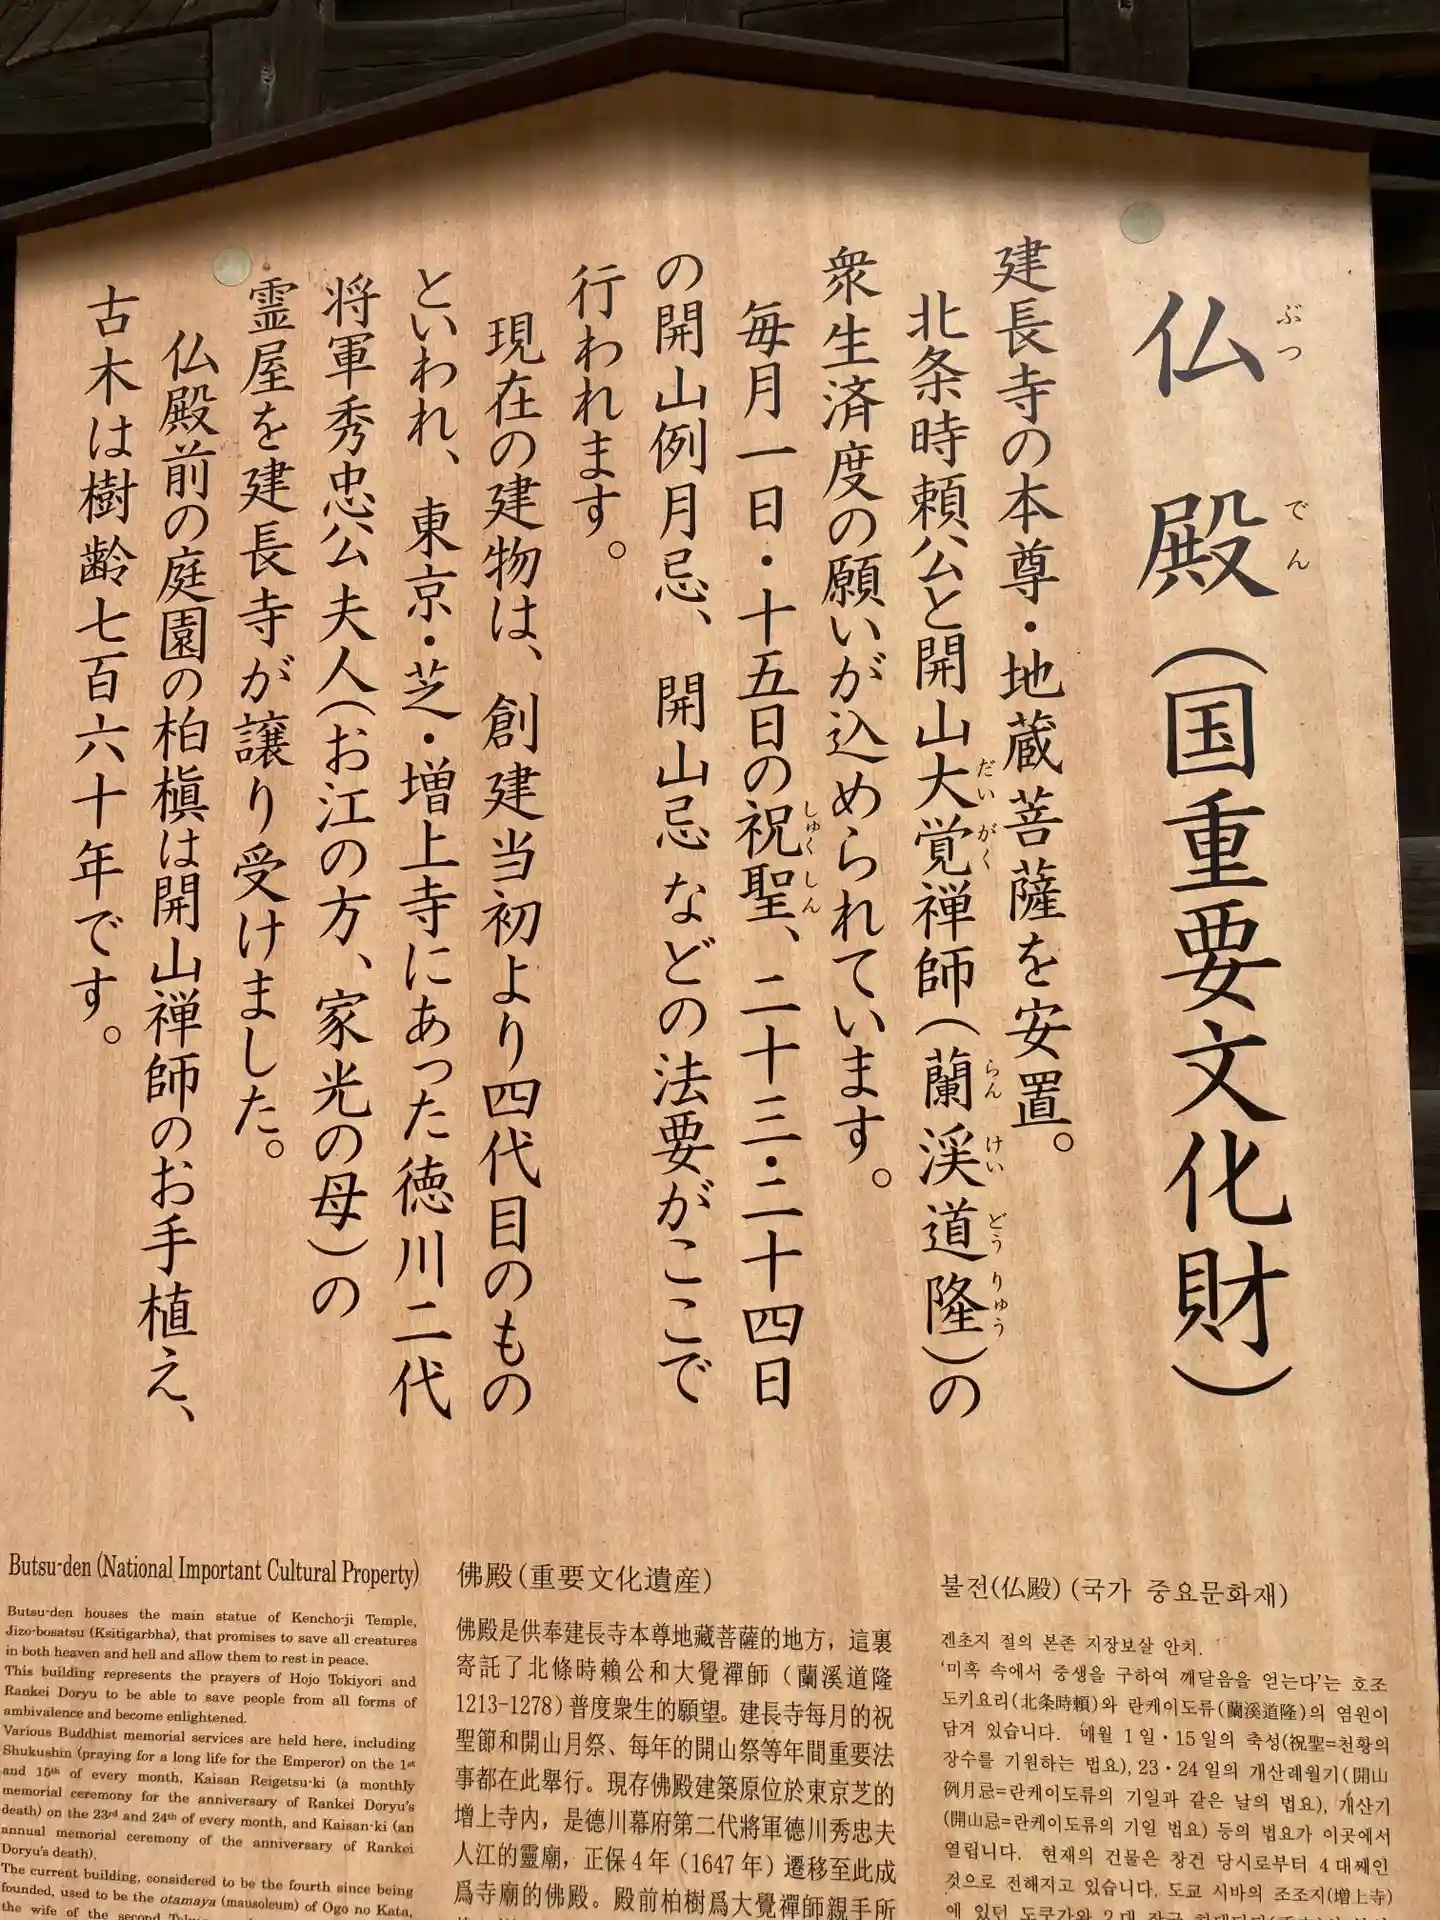 仏殿(国重要文化財)
ぶつ でん
建長寺の本尊・地蔵菩薩を安置。
北条時頼公と開山大覚禅師(蘭渓道隆)の
だいがく らんけいどうりゅう
衆生済度の願いが込められています。
毎月一日・十五日の祝聖、二十三・二十四日
しゅくしん
の開山例月忌、開山忌などの法要がここで
行われます。
現在の建物は、創建当初より四代目のもの
といわれ、東京・芝・増上寺にあった徳川二代
将軍秀忠公夫人(お江の方、家光の母)の
霊屋を建長寺が譲り受けました。
仏殿前の庭園の柏槇は開山禅師のお手植え、
古木は樹齢七百六十年です。
Butsu-den (National Important Cultural Property)
Butsu-den houses the main statue of Kencho-ji Temple,
Jizo-bosatsu (Ksitigarbha), that promises to save all creatures
in both heaven and hell and allow them to rest in peace.
This building represents the prayers of Hojo Tokiyori and
Rankei Doryu to be able to save people from all forms of
ambivalence and become enlightened.
Various Buddhist memorial services are held here, including
Shukushin (praying for a long life for the Emperor) on the 1st
and 15th of every month, Kaisan Reigetsu-ki (a monthly
memorial ceremony for the anniversary of Rankei Doryu's
death) on the 23rd and 24th of every month, and Kaisan-ki (an
annual memorial ceremony of the anniversary of Rankei
Doryu's death).
The current building, considered to be the fourth since being
founded, used to be the otamaya (mausoleum) of Ogo no Kata,
the wife of the second
佛殿(重要文化遺産)
佛殿是供奉建長寺本尊地藏菩薩的地方，這裏
寄託了北條時賴公和大覺禪師（蘭溪道隆
1213-1278）普度衆生的願望。建長寺每月的祝
聖節和開山月祭、每年的開山祭等年間重要法
事都在此舉行。現存佛殿建築原位於東京芝的
增上寺內，是德川幕府第二代將軍德川秀忠夫
人江的靈廟，正保4年（1647年）遷移至此成
爲寺廟的佛殿。殿前柏樹爲大覺禪師親手所
불전(仏殿) (국가 중요문화재)
겐초지 절의 본존 지장보살 안치.
'미혹 속에서 중생을 구하여 깨달음을 얻는다'는 호조
도키요리(北条時頼)와 란케이도류(蘭渓道隆)의 염원이
담겨 있습니다. 매월 1일・15일의 축성(祝聖=천황의
장수를 기원하는 법요), 23・24일의 개산례월기(開山
例月忌=란케이도류의 기일과 같은 날의 법요), 개산기
(開山忌=란케이도류의 기일 법요) 등의 법요가 이곳에서
열립니다. 현재의 건물은 창건 당시로부터 4대째인
것으로 전해지고 있습니다. 도쿄 시바의 조조지(増上寺)
에 있던 도쿠가와 2대